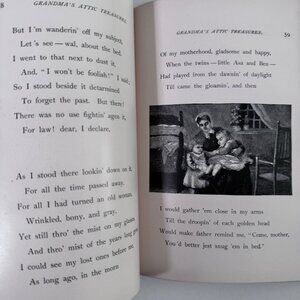 8
GRANDMA'S ATTIC TREASURES.
But I'm wanderin' off my subject,
Let's see—wal, about the bed.
I went to that next to dust it,
And, "I won't be foolish!" I said;
So I stood beside it determined
To forget the past. But there!
There was no use fightin' ages it,
For law! dear, I declare,
As I stood there lookin' down on it,
For all the time passed away.
For all I had turned an old woman,
Wrinkled, bony, and gray,
Yet still thro' the mist on my glasses
And thro' mist of the years long gone
I could see my lost ones before me
As long ago, in the morn
GRANDMA'S ATTIC TREASURES.
59
Of my motherhood, gladsome and happy,
When the twins—little Asa and Ben—
Had played from the dawnin' of daylight
Till came the gloamin', and then
I would gather 'em close in my arms
Till the droopin' of each golden head
Would make father remind me, "Come, mother,
You'd better jest snug 'em in bed."